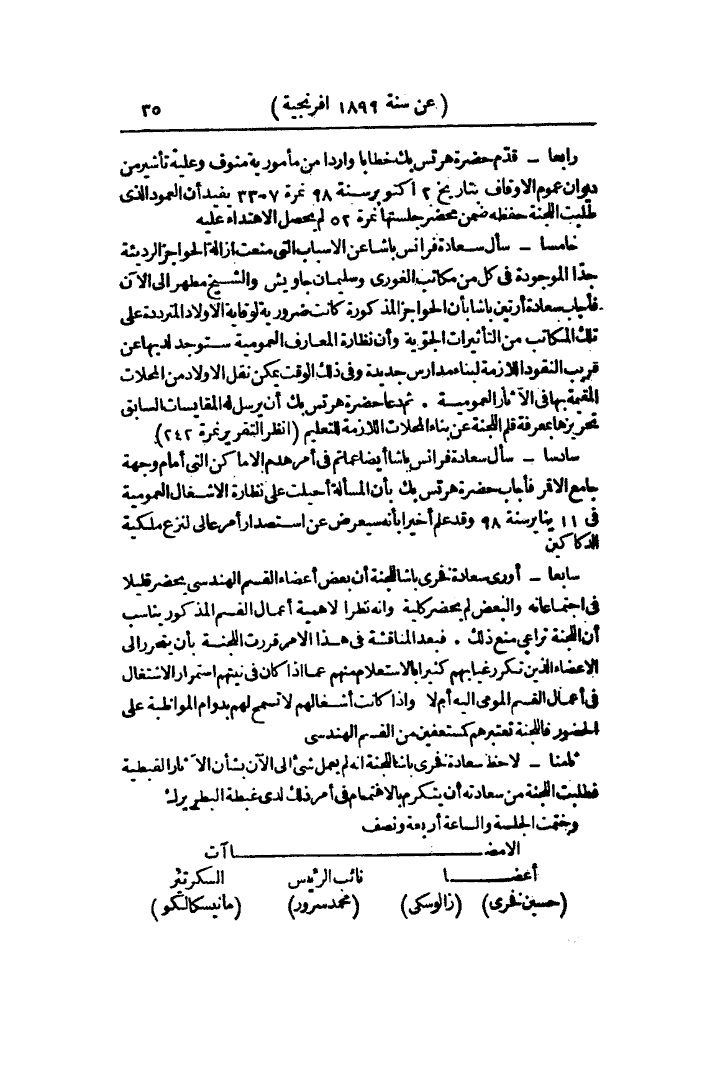 (عن سنة ١٨٩٩ افرنجية) ٣٥
رابعا – قدّم حضرة هرتس بك خطابا واردا من مأمورية منوف وعليه تأشير من
ديوان عموم الاوقاف بتاريخ ٢ اكتوبر سنة ٩٨ نمرة ٣٣٠٧ يفيد أن العمود الذى
طلبت اللجنة حفظه ضمن محضر جلستها نمرة ٥٢ لم يحصل الاهتداء عليه
خامسا – سأل سعادة فرانس باشا عن الاسباب التى منعت ازالة الحواجز الرديئة
جدّا الموجودة فى كل من مكاتب الغورى وسليمان جاويش والشيخ مطهر الى الآن
فأجاب سعادة أرتين باشا بأن الحواجز المذكورة كانت ضرورية لوقاية الاولاد المترددة على
تلك المكاتب من التأثيرات الجوّية وأن نظارة المعارف العمومية ستوجد لديها عن
قريب النقود اللازمة لبناء مدارس جديدة وفى ذلك الوقت يمكن نقل الاولاد من المحلات
المقيمة بها فى الآثار العمومية . ثم دعا حضرة هرتس بك أن يرسل له المقايسات السابق
تحريرها بمعرفة قلم اللجنة عن بناء المحلات اللازمة للتعليم (انظر التقرير نمرة ٢٤٢)
سادسا – سأل سعادة فرانس باشا أيضا عما تم فى أمر هدم الاماكن التى أمام وجهة
جامع الاقمر فأجاب حضرة هرتس بك بأن المسألة أحيلت على نظارة الاشغال العمومية
فى ١١ يناير سنة ٩٨ وقد علم أخيرا بأنه سيعرض عن استصدار أمر عالى لنزع ملكية
الدكاكين
سابعا – أورى سعادة فخرى باشا للجنة أن بعض أعضاء القسم الهندسى يحضر قليلا
فى اجتماعاته والبعض لم يحضر كلية وانه نظرا لاهمية أعمال القسم المذكور يناسب
أن اللجنة تراعى منع ذلك . فبعد المناقشة فى هذا الامر قررت اللجنة بأن يتحرر الى
الاعضاء الذين تكرر غيابهم كثيرا بالاستعلام منهم عما اذا كان فى نيتهم استمرار الاشتغال
فى أعمال القسم المومى اليه أم لا واذا كانت أشغالهم لا تسمح لهم بدوام المواظبة على
الحضور فاللجنة تعتبرهم كمستعفين من القسم الهندسى
ثامنا – لاحظ سعادة فخرى باشا للجنة انه لم يعمل شئ الى الآن بشأن الآثار القبطية
فطلبت اللجنة من سعادته أن يتكرم بالاهتمام فى أمر ذلك لدى غبطة البطريرك
وختمت الجلسة والساعة أربعة ونصف
الامضاآت
أعضا نائب الرئيس السكرتير
(حسين فخرى) (زالوسكى) (محمد سرور) (مانيسكالكو)